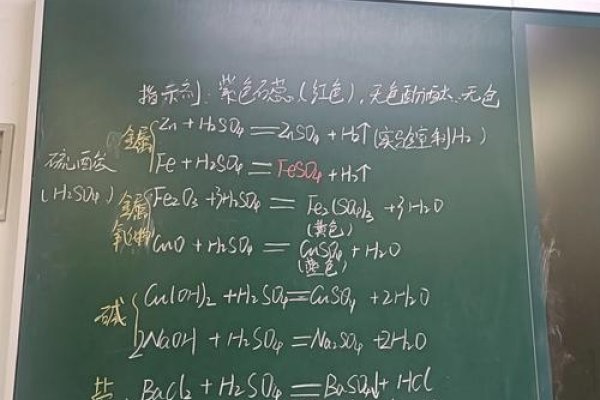 指示剂：紫色石蕊（红色），无色酚酞：无色
Zn + H₂SO₄ = ZnSO₄ + H₂↑（实验室制H₂）
金属
Fe + H₂SO₄ = FeSO₄ + H₂↑
硫酸
（H₂SO₄）
金属
氧化物
Fe₂O₃ + 3H₂SO₄ = Fe₂(SO₄)₃ + 3H₂O
（黄色）
CuO + H₂SO₄ = CuSO₄ + H₂O
（蓝色）
Cu(OH)₂ + H₂SO₄ = CuSO₄ + 2H₂O
碱
2NaOH + H₂SO₄ = Na₂SO₄ + 2H₂O
盐
BaCl₂ + H₂SO₄ = BaSO₄↓ + HCl